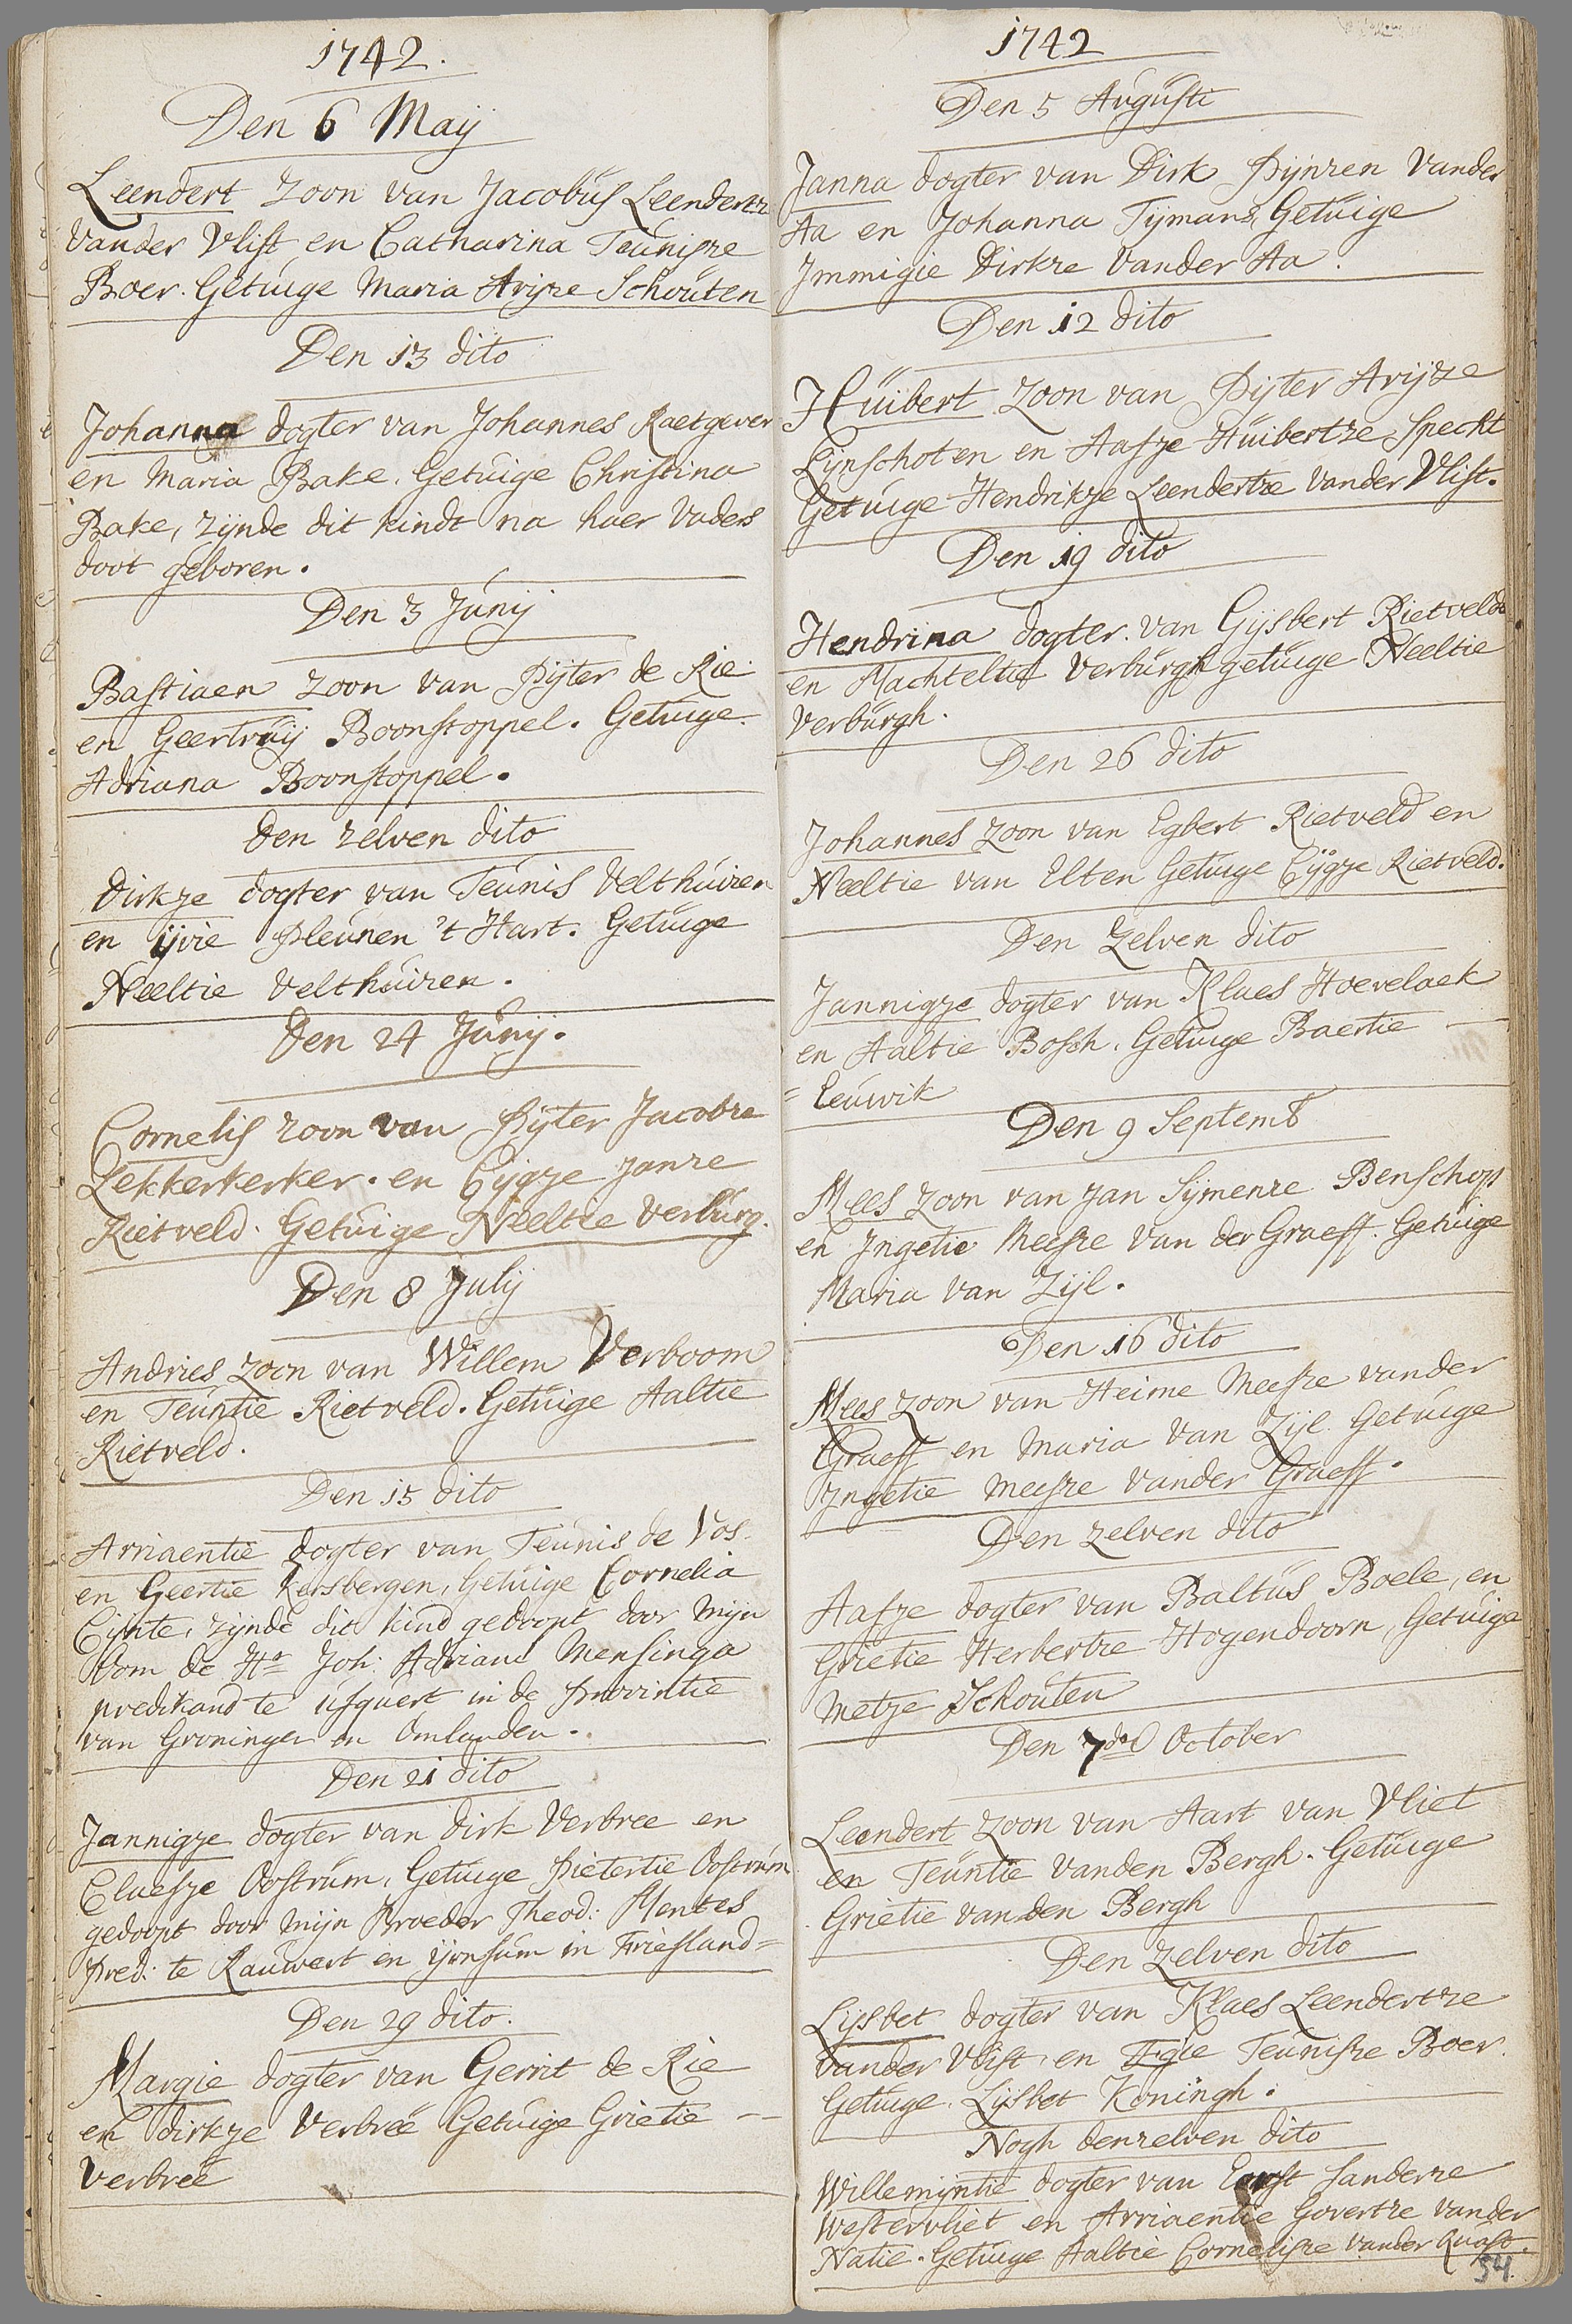 1742.
Den 6 Maij
Leendert zoon van Jacobus Leendertz
vander Vlist en Catharina Teunisze
Boer. Getuige Maria Arijze Schouten
Den 13 dito
Johanna dogter van Johannes Raetgever
en Maria Bake. Getuige Christina
Bake, zijnde dit kindt na haer vaders
doot geboren.
Den 3 Junij
Bastiaen zoon van Pijter de Rie
en Geertruij Boonstoppel. Getuige
Adriana Boonstoppel.
Den zelven dito
Dirkze dogter van Teunis Velthuizen
en ijvie Pleunen 't Hart. Getuige
Neeltie Velthuizen.
Den 24 Junij.
Cornelis zoon van Pijter Jacobze
Lekkerkerker. en Eijgze Janze
Rietveld. Getuige Neeltie Verburg.
Den 8 Julij
Andries zoon van Willem Verboom
en Teuntie Rietveld. Getuige Aaltie
Rietveld.
Den 15 dito
Arriaentie dogter van Teunis de Vos
en Geertie Kersbergen, Getuige Cornelia
zijnde dit kind gedoopt door mijn
Oom de Hr Joh: Adriani Mensinga
predikand te Usquert in de provintie
van Groningen en Omlanden.
Den 21 dito
Jannigze dogter van Dirk Verbree en
Claesze Oostrum, Getuige Pietertie Oostrum
gedoopt door mijn Broeder Theod: Mentes
Pred: te Rauwert en ijrnsum in Friesland=
Den 29 dito.
Margie dogter van Gerrit de Rie
en Dirkze Verbree Getuige Grietie —
Verbree
1742
Den 5 Augusti
Janna dogter van Dirk Pijnzen vander
Aa en Johanna Tijmans, Getuige
Jmmigie Dirkze vander Aa.
Den 12 dito
Huibert zoon van Pijter Arijze
Lijnschoten en Aafze Huibertze Specht
Getuige Hendrikze Leendertze vander Vlist.
Den 19 dito
Hendrina dogter van Gijsbert Rietveld
en Machteltie Verburgh getuige Neeltie
Verburgh.
Den 26 dito
Johannes zoon van Egbert Rietveld en
Neeltie van Elten Getuige Eijgze Rietveld.
Den Zelven dito
Jannigze dogter van Klaes Hoevelaek
en Aaltie Bossh. Getuige Baertie —
= Leuwik
Den 9 Septemb
Mees zoon van Jan Sijmenze Benschop
en Jngetie Meesze van der Graeff. Getuige
Maria van Zijl.
Den 16 dito
Mees zoon van Heime Meesze vander
Graeff en Maria van Zijl Getuige
Jngetie Meesze vander Graeff.
Den zelven dito
Aafze dogter van Baltus Boele, en
Grietie Herbertze Hogendoorn, Getuige
Metze Schouten
Den 7de October
Leendert zoon van Aart van Vliet
en Teuntie vanden Bergh. Getuige
Grietie vanden Bergh
Den zelven dito
Lijsbet dogter van Klaes Leendertze
vander Vlist, en Egie Teunisze Boer.
Getuige. Lijsbet Koningh.
Nogh denzelven dito
Willemijntie dogter van Eerst Sanderze
Westervliet en Arriaentie Govertze vander
Natie. Getuige Aaltie Cornelisze vander Quast.
54